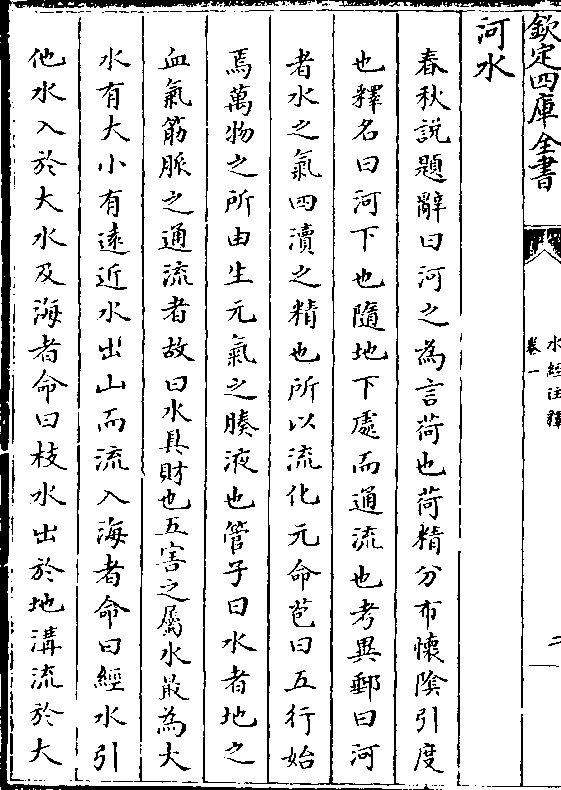 欽定四庫全書
水經注釋
卷一
二
河水
春秋説題辭曰河之為言荷也荷精分布懷陰引度
也釋名曰河下也隨地下處而通流也考異郵曰河
者水之氣四瀆之精也所以流化元命苞曰五行始
焉萬物之所由生元氣之腠液也管子曰水者地之
血氣筋脈之通流者故曰水具財也五害之屬水最為大
水有大小有遠近水出山而流入海者命曰經水引
他水入於大水及海者命曰枝水出於地溝流於大